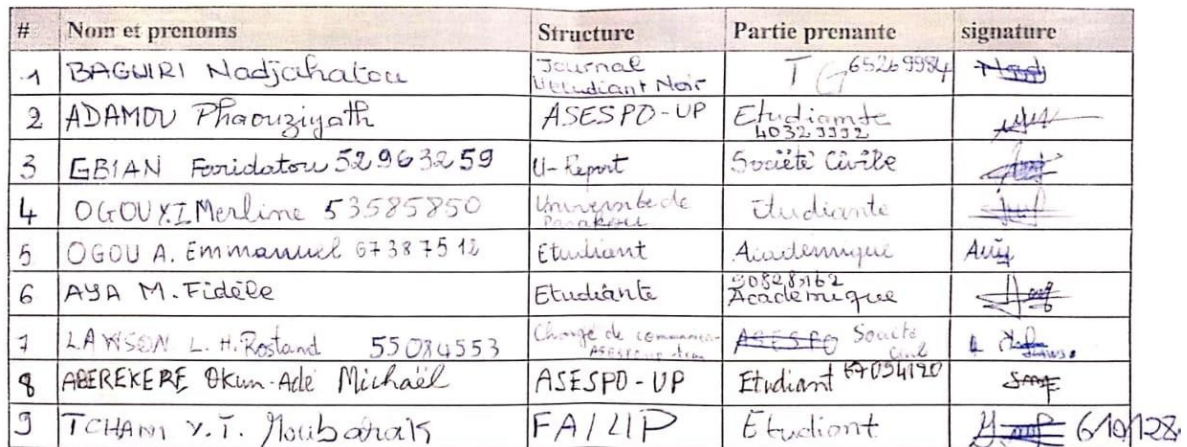 # Nom et prenoms Structure Partie prenante signature
1 BAGUIRI Nadjahatou Journal L'etudiant Noir T G 65269984
2 ADAMOU Phaouziyath ASESPO-UP Etudiante 40323332
3 GBIAN Faridatou 52963259 U-Report Société Civile
4 OGOUYI Merline 53585850 Université de Parakou Etudiante
5 OGOU A. Emmanuel 67387512 Etudiant Académique
6 AYA M. Fidèle Etudiante 90828162 Académique
7 LAWSON L. H. Rostand 55084553 Chargé de ASESPO Société Civil
8 ABEREKERE Okun-Adé Michaël ASESPO-UP Etudiant 67094120
9 TCHANI Y.T. Moubarak FA/UP Etudiant